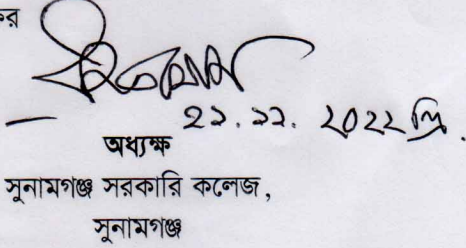 ২১.১২. ২০২২ খ্রি.
অধ্যক্ষ
সুনামগঞ্জ সরকারি কলেজ,
সুনামগঞ্জ